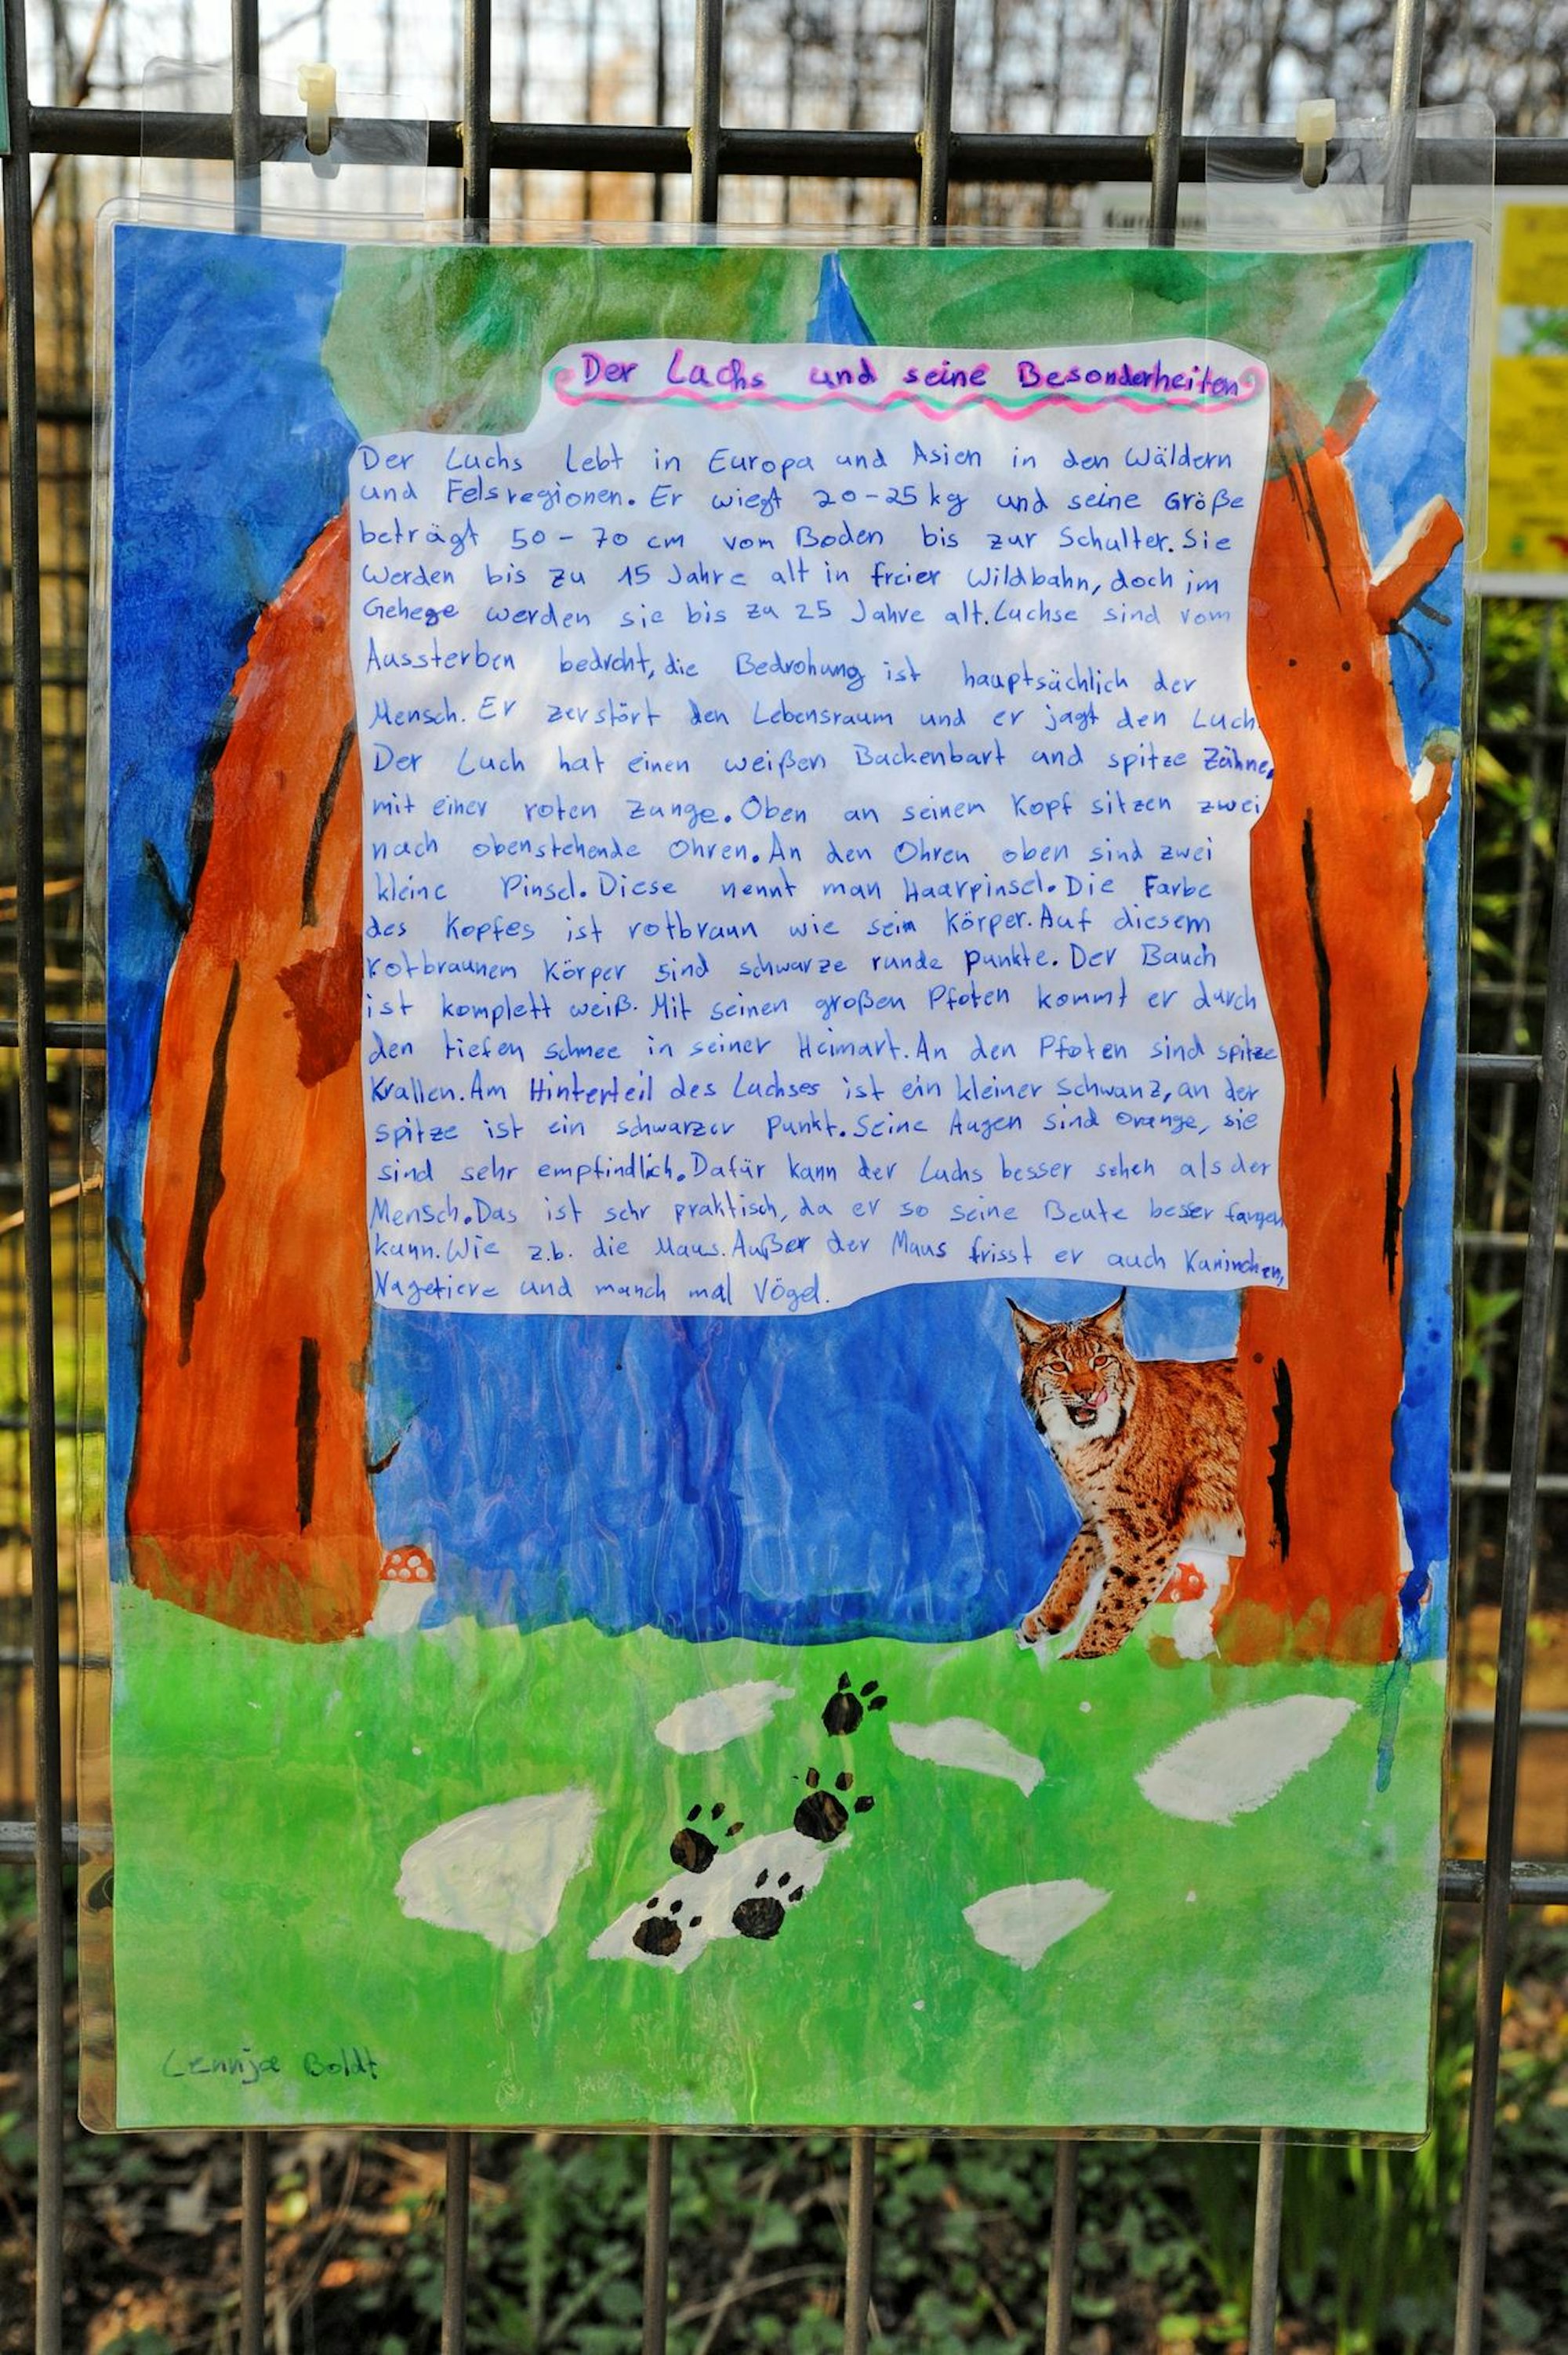 Der Luchs und seine Besonderheiten
Der Luchs lebt in Europa und Asien in den Wäldern
und Felsregionen. Er wiegt 20-25 kg und seine Größe
beträgt 50 - 70 cm vom Boden bis zur Schulter. Sie
werden bis zu 15 Jahre alt in freier Wildbahn, doch im
Gehege werden sie bis zu 25 Jahre alt. Luchse sind vom
Aussterben bedroht, die Bedrohung ist hauptsächlich der
Mensch. Er zerstört den Lebensraum und er jagt den Luch.
Der Luch hat einen weißen Backenbart und spitze Zähne,
mit einer roten Zunge. Oben an seinem Kopf sitzen zwei
nach obenstehende Ohren. An den Ohren oben sind zwei
kleine Pinsel. Diese nennt man Haarpinsel. Die Farbe
des Kopfes ist rotbraun wie sein Körper. Auf diesem
rotbraunem Körper sind schwarze runde punkte. Der Bauch
ist komplett weiß. Mit seinen großen Pfoten kommt er durch
den tiefen schnee in seiner Heimart. An den Pfoten sind spitze
Krallen. Am Hinterteil des Luchses ist ein kleiner schwanz, an der
spitze ist ein schwarzer punkt. Seine Augen sind orange, sie
sind sehr empfindlich. Dafür kann der Luchs besser sehen als der
Mensch. Das ist sehr praktisch, da er so seine Beute besser fangen
kann. Wie z.b. die Maus. Außer der Maus frisst er auch Kaninchen,
Nagetiere und manch mal Vögel.
Lennja Boldt